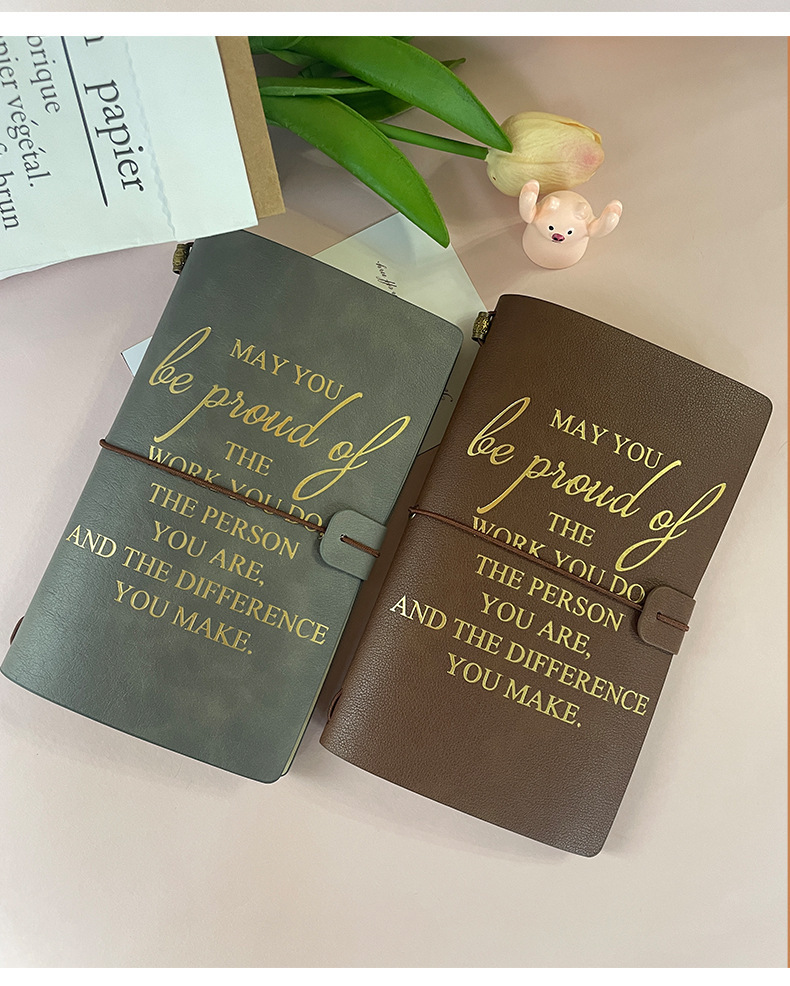 papier
orique
pier végétal.
brun
MAY YOU
be proud of
THE
WORK YOU DO
THE PERSON
YOU ARE,
AND THE DIFFERENCE
YOU MAKE.
MAY YOU
be proud of
THE
WORK YOU DO
THE PERSON
YOU ARE,
AND THE DIFFERENCE
YOU MAKE.